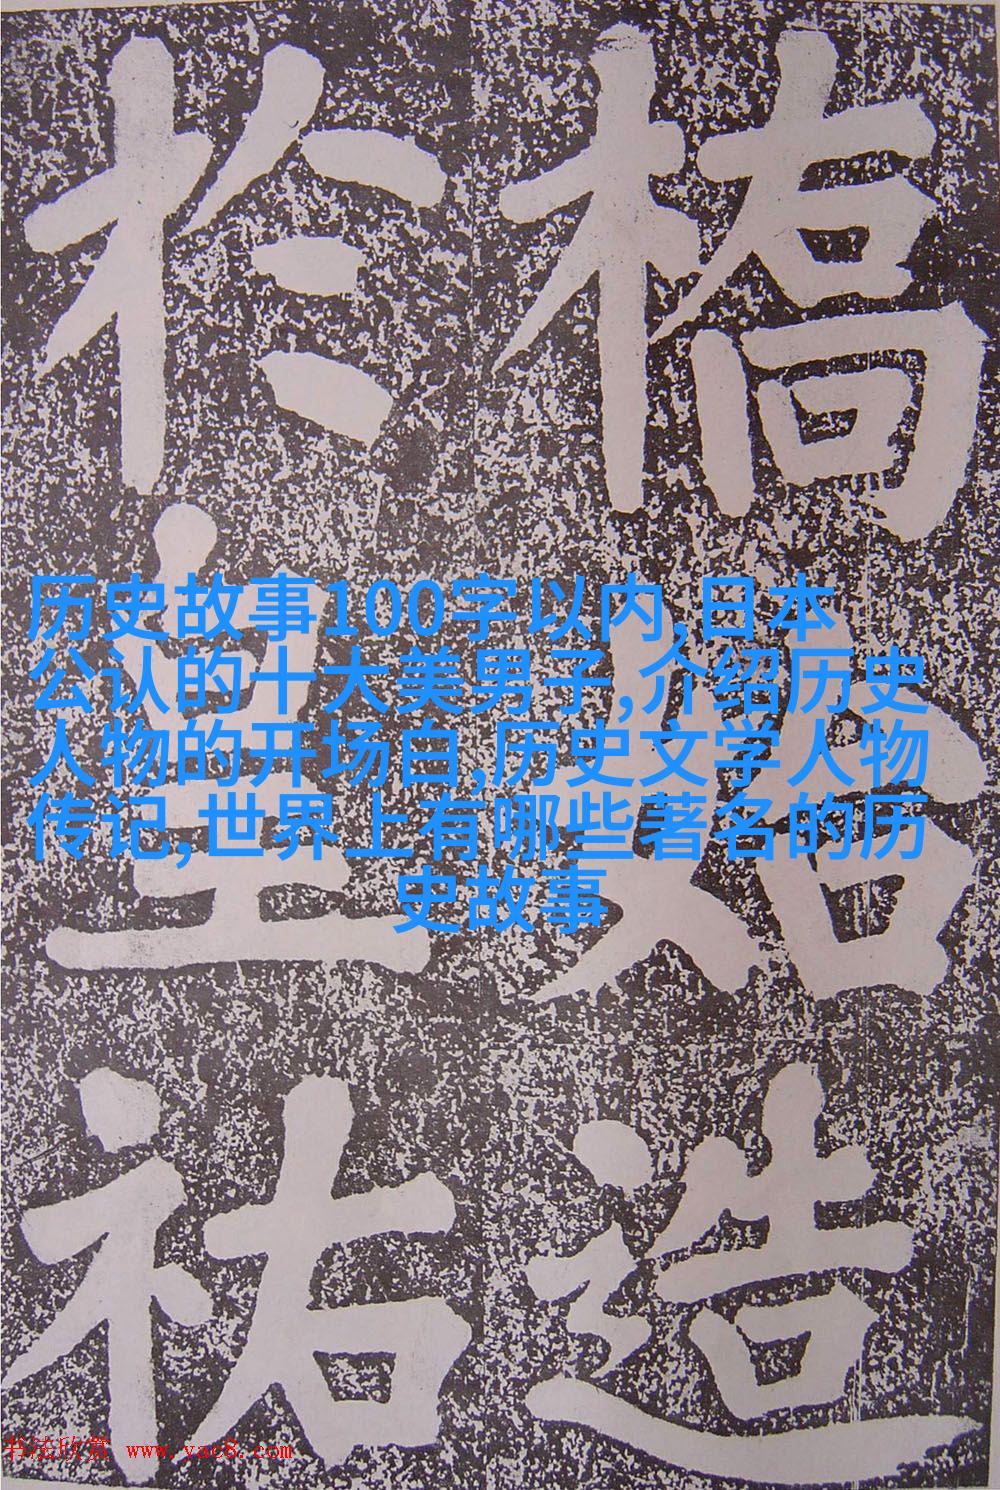 橋始造
於皇祐
历史故事100字以内,日本
公认的十大美男子,介绍历史
人物的开场白,历史文学人物
传记,世界上有哪些著名的历
史故事
书法欣赏 www.yac8.com